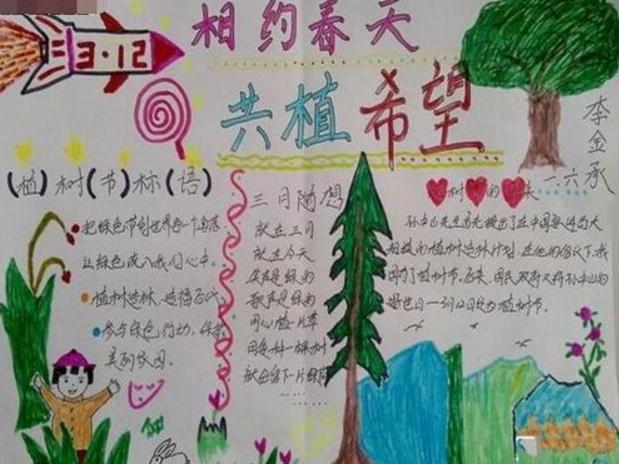 3·12
相约春天
共植希望
李金承
一.六
(植)树(节)标(语)
把绿色带到世界每一个角落
让绿色流入我们心中。
植树造林,造福
参与绿色行动,保护
美丽家园。
三月随想
就在三月
就在今天
笑声是绿的
歌声是绿的
用心植一片草
就会留下一片绿荫
树的来
孙中山先生
植树造林计划,在他的倡议下,我
国有了植树节。后来,国民政府又将孙中山的
逝世日—3月12日定为植树节。